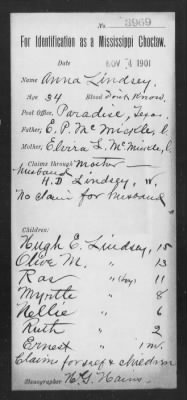 No 3969
For Identification as a Mississippi Choctaw.
Date NOV 14 1901
Name Anna Lindsey,
Age 34 Blood Don't Know.
Post Office, Paradise, Texas.
Father, E. P. McMickle, l
Mother, Elvira L. McMickle, l
Claims through mother
Husband
H. D. Lindsey, w.
No claim for husband
Children:
Hugh E. Lindsey, 15
Olive M. " 13
Ras " (boy) 11
Myrtle " 8
Nellie " 6
Ruth " 2
Ernest " 1 m.
Claim for self & children
Stenographer H. G. Hains.